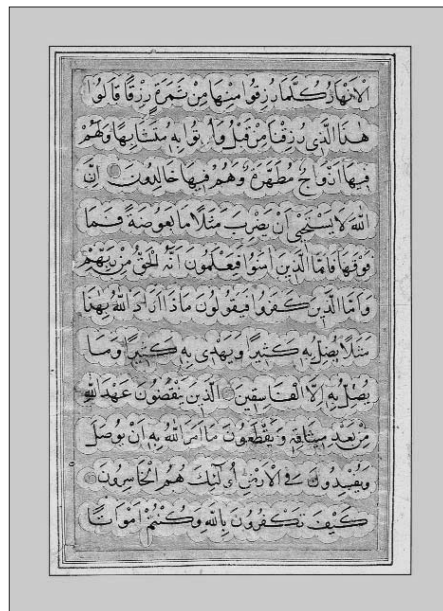 الْاَنْهَارُ كُلَّمَا رُزِقُوا مِنْهَا مِنْ ثَمَرَةٍ رِزْقًا قَالُوا
هٰذَا الَّذِى رُزِقْنَا مِنْ قَبْلُ وَاُتُوا بِهِ مُتَشَابِهًا وَلَهُمْ
فِيهَا اَزْوَاجٌ مُطَهَّرَةٌ وَهُمْ فِيهَا خَالِدُونَ اِنَّ
اللّٰهَ لَا يَسْتَحْيِى اَنْ يَضْرِبَ مَثَلًا مَا بَعُوضَةً فَمَا
فَوْقَهَا فَاَمَّا الَّذِينَ اٰمَنُوا فَيَعْلَمُونَ اَنَّهُ الْحَقُّ مِنْ رَبِّهِمْ
وَاَمَّا الَّذِينَ كَفَرُوا فَيَقُولُونَ مَاذَا اَرَادَ اللّٰهُ بِهٰذَا
مَثَلًا يُضِلُّ بِهِ كَثِيرًا وَيَهْدِى بِهِ كَثِيرًا وَمَا
يُضِلُّ بِهِ اِلَّا الْفَاسِقِينَ الَّذِينَ يَنْقُضُونَ عَهْدَ اللّٰهِ
مِنْ بَعْدِ مِيثَاقِهِ وَيَقْطَعُونَ مَا اَمَرَ اللّٰهُ بِهِ اَنْ يُوصَلَ
وَيُفْسِدُونَ فِى الْاَرْضِ اُولٰئِكَ هُمُ الْخَاسِرُونَ
كَيْفَ تَكْفُرُونَ بِاللّٰهِ وَكُنْتُمْ اَمْوَاتًا